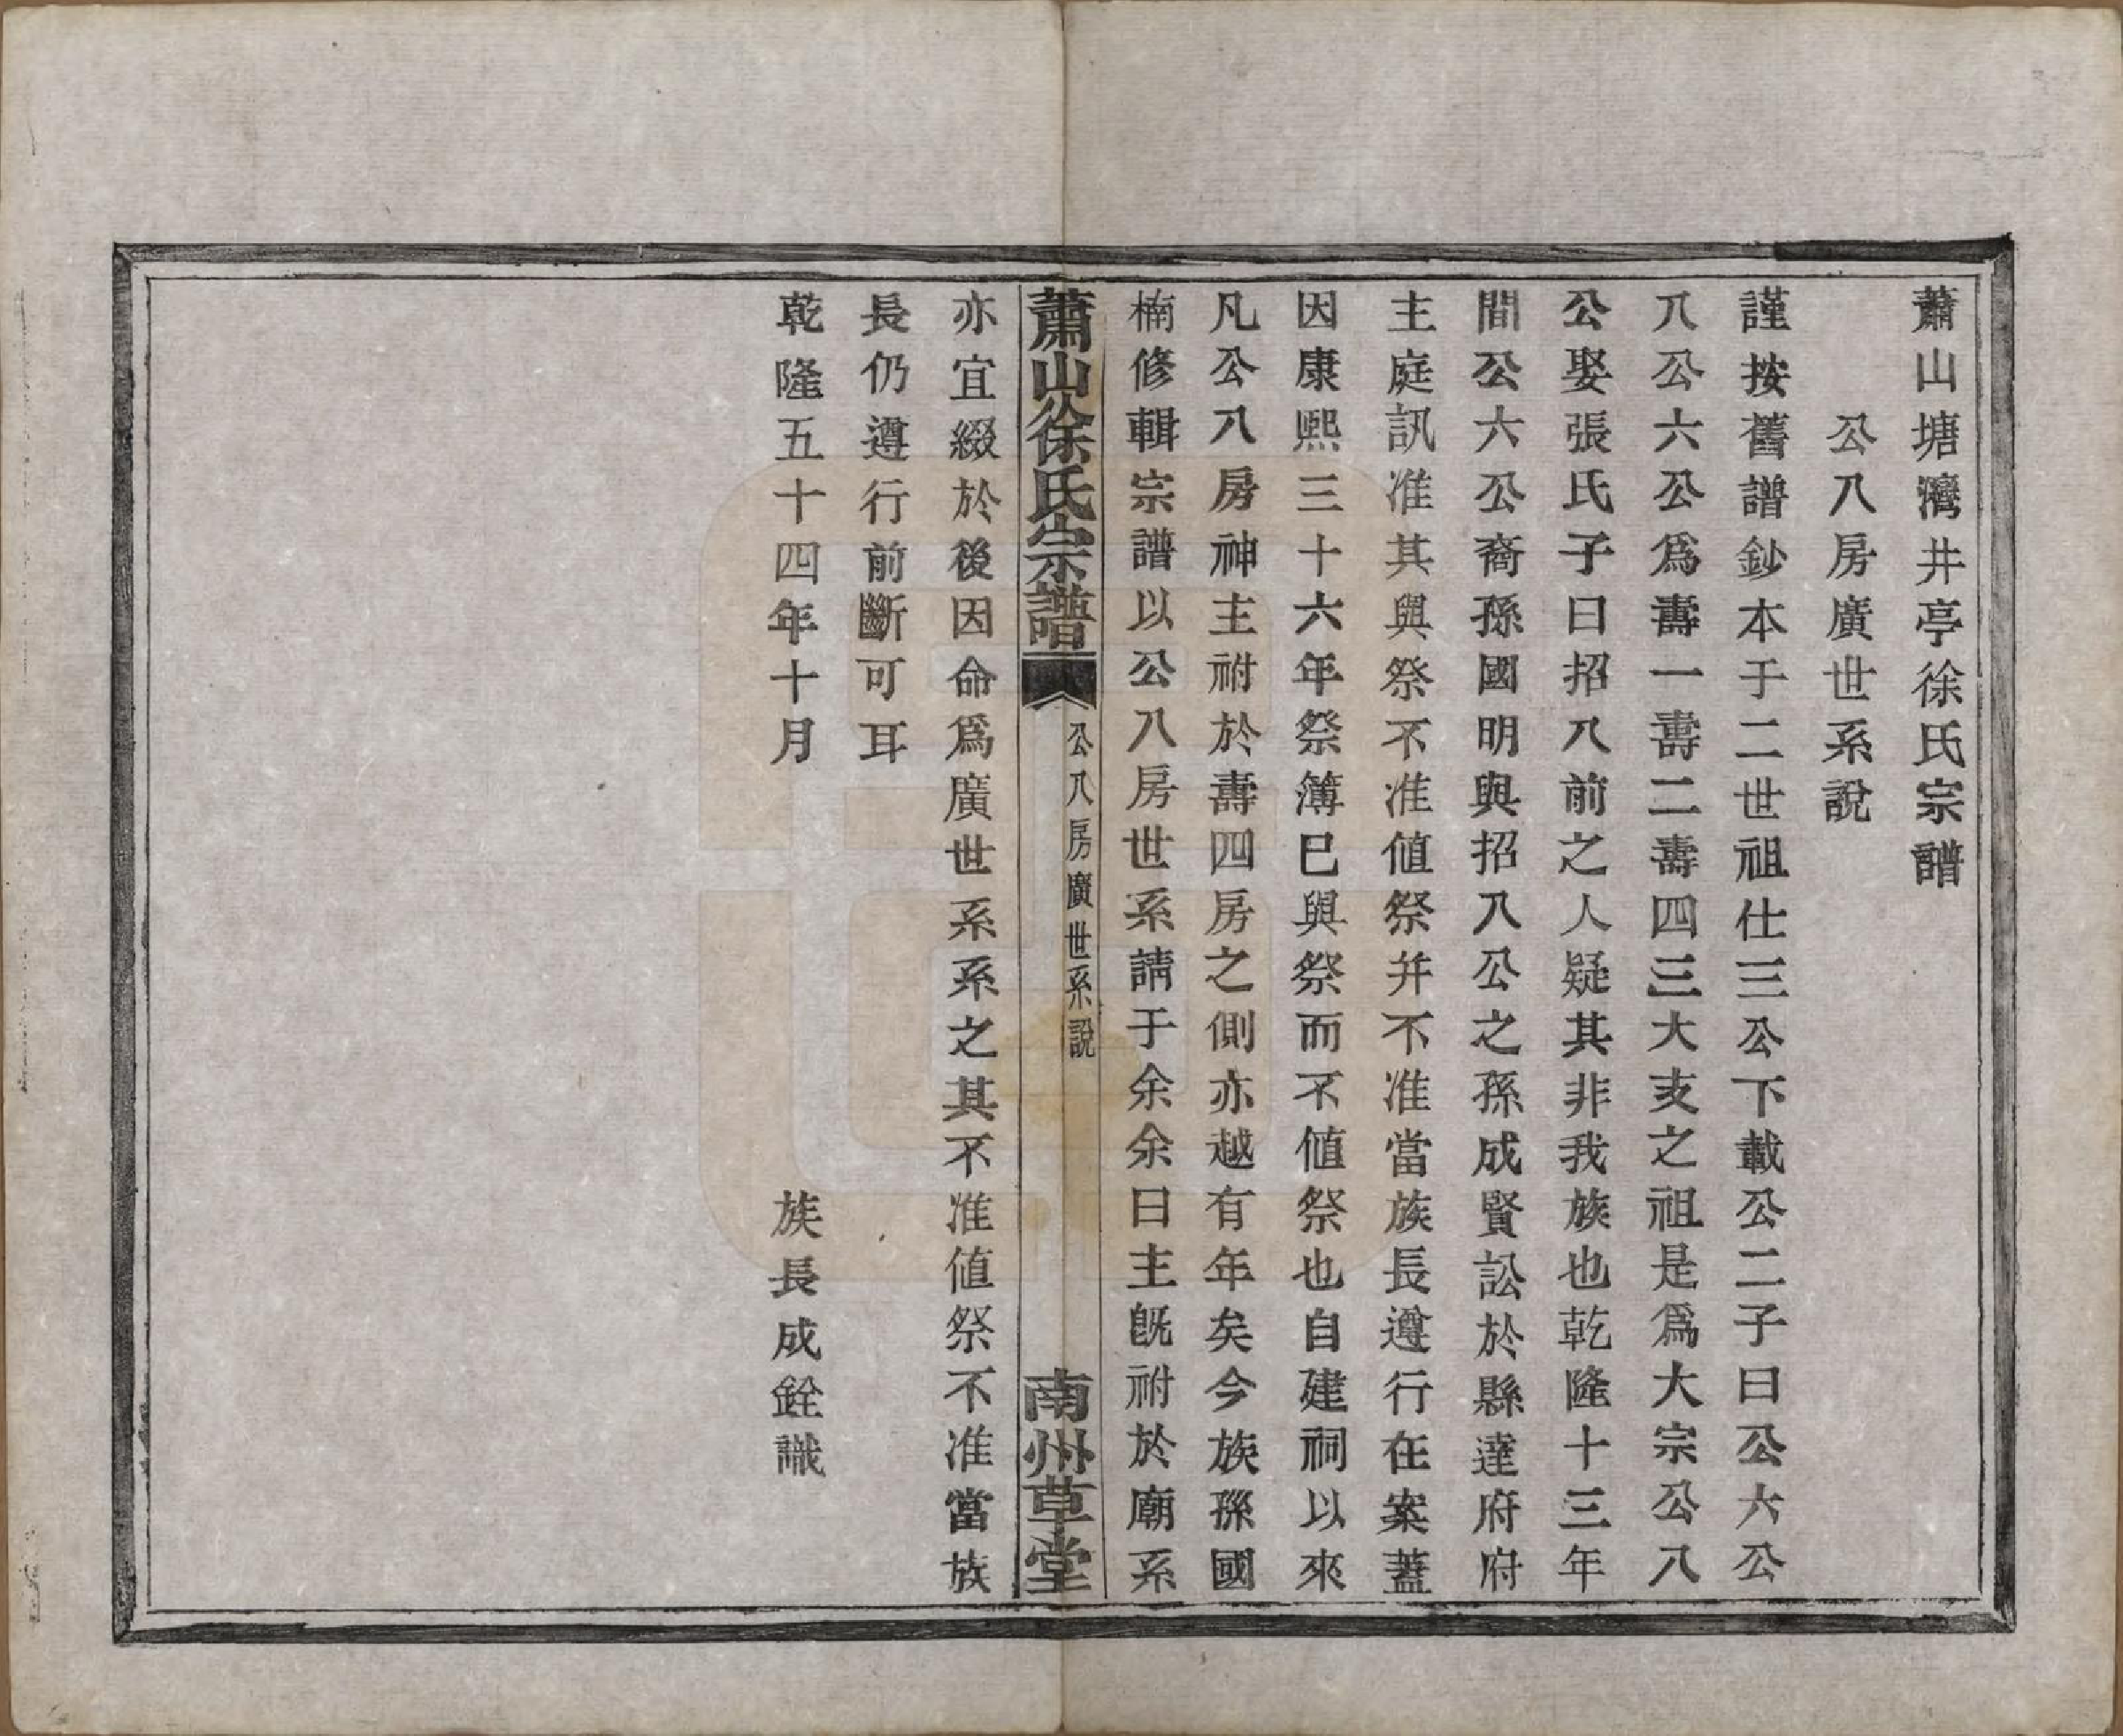 蕭山塘灣井亭徐氏宗譜
公八房廣世系說
謹按舊譜鈔本于二世祖仕三公下載公二子曰公六公
八公六公爲壽一壽二壽四三大支之祖是爲大宗公八
公娶張氏子曰招八前之人疑其非我族也乾隆十三年
間公六公裔孫國明與招八公之孫成賢訟於縣達府府
主庭訊准其與祭不准值祭并不准當族長遵行在案蓋
因康熙三十六年祭簿巳與祭而不值祭也自建祠以來
凡公八房神主祔於壽四房之側亦越有年矣今族孫國
楠修輯宗譜以公八房世系請于余余曰主旣祔於廟系
蕭山徐氏宗譜
公八房廣世系說
南州草堂
亦宜綴於後因命爲廣世系系之其不准值祭不准當族
長仍遵行前斷可耳
乾隆五十四年十月 族長成銓識